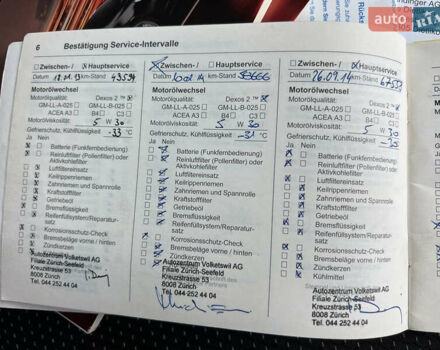 6 Bestätigung Service-Intervalle
Zwischen- / Hauptservice
Datum 12.09.13 km-Stand 43594
Motorölwechsel
Motorölqualität: Dexos 2 ™
GM-LL-A-025 GM-LL-B-025
ACEA A3 B4 C3
Motorölviskosität: 5 W 30
Gefrierschutz, Kühlflüssigkeit -33 °C
Ja Nein
Batterie (Funkfernbedienung)
Reinluftfilter (Pollenfilter) oder
Aktivkohlefilter
Luftfiltereinsatz
Keilriemen
Zahnriemen und Spannrolle
Kraftstofffilter
Getriebeöl
Bremsflüssigkeit
Reifenfüllsystem/Reparatur-
satz
Korrosionsschutz-Check
Bremsbeläge vorne / hinten
Zündkerzen
Autozentrum Volketswil AG
Filiale Zürich-Seefeld
Kreuzstrasse 53
8008 Zürich
Tel. 044 252 44 04
Zwischen- / Hauptservice
Datum km-Stand
Motorölwechsel
Motorölqualität: Dexos 2 ™
GM-LL-A-025 GM-LL-B-025
ACEA A3 B4 C3
Motorölviskosität: 5 W 30
Gefrierschutz, Kühlflüssigkeit -31 °C
Ja Nein
Batterie (Funkfernbedienung)
Reinluftfilter (Pollenfilter) oder
Aktivkohlefilter
Luftfiltereinsatz
Keilriemen
Zahnriemen und Spannrolle
Kraftstofffilter
Getriebeöl
Bremsflüssigkeit
Reifenfüllsystem/Reparatur-
satz
Korrosionsschutz-Check
Bremsbeläge vorne / hinten
Zündkerzen
Autozentrum Volketswil AG
Filiale Zürich-Seefeld
Kreuzstrasse 53
8008 Zürich
Tel. 044 252 44 04
Zwischen- / Hauptservice
Datum 26.09.14 km-Stand
Motorölwechsel
Motorölqualität: Dexos 2 ™
GM-LL-A-025 GM-LL-B-025
ACEA A3 B4 C3
Motorölviskosität: 5 W 30
Gefrierschutz, Kühlflüssigkeit
Ja Nein
Batterie (Funkfernbedienung)
Reinluftfilter (Pollenfilter) oder
Aktivkohlefilter
Luftfiltereinsatz
Keilriemen
Zahnriemen und Spannrolle
Kraftstofffilter
Getriebeöl
Bremsflüssigkeit
Reifenfüllsystem/Reparatur-
satz
Korrosionsschutz-Check
Bremsbeläge vorne /
hinten
Zündkerzen
Kühlmittel
Autozentrum Volketswil AG
Filiale Zürich-Seefeld
Kreuzstrasse 53
8008 Zürich
Tel. 044 252 44 04
Rücks
AUTO
RIA